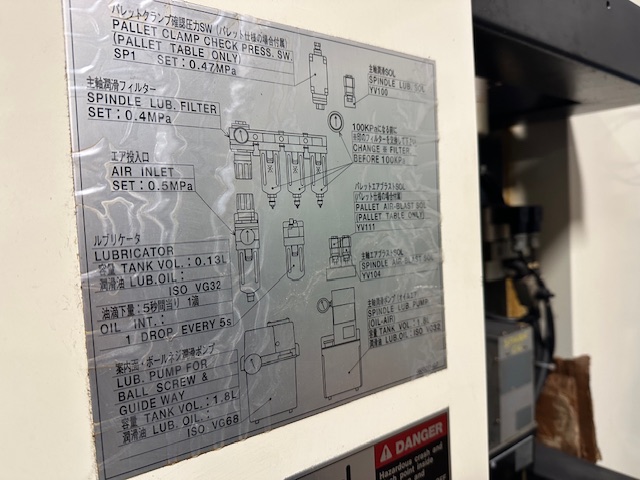 パレットクランプ確認圧力SW (パレット仕様の場合付属)
PALLET CLAMP CHECK PRESS. SW
(PALLET TABLE ONLY)
SP1 SET: 0.47MPa
主軸潤滑フィルター
SPINDLE LUB. FILTER
SET: 0.4MPa
エア投入口
AIR INLET
SET: 0.5MPa
ルブリケータ
LUBRICATOR
容量 TANK VOL.: 0.13L
潤滑油 LUB.OIL:
ISO VG32
油滴下量: 5秒間当り 1滴
OIL INT.:
1 DROP EVERY 5s
案内面・ボールネジ潤滑ポンプ
LUB. PUMP FOR
BALL SCREW &
GUIDE WAY
容量 TANK VOL.: 1.8L
潤滑油 LUB. OIL:
ISO VG68
主軸潤滑SOL
SPINDLE LUB. SOL
YV100
100KPaになる前に
※印のフィルターを交換して下さい
CHANGE ※ FILTER
BEFORE 100KPa
パレットエアブラストSOL
(パレット仕様の場合付属)
PALLET AIR-BLAST SOL
(PALLET TABLE ONLY)
YV111
主軸エアブラストSOL
SPINDLE AIR BLAST SOL
YV104
主軸潤滑ポンプ(オイルエア)
SPINDLE LUB. PUMP
(OIL-AIR)
容量 TANK VOL.: 1.8L
潤滑油 LUB.OIL: ISO VG32
DANGER
Hazardous crash and
point inside